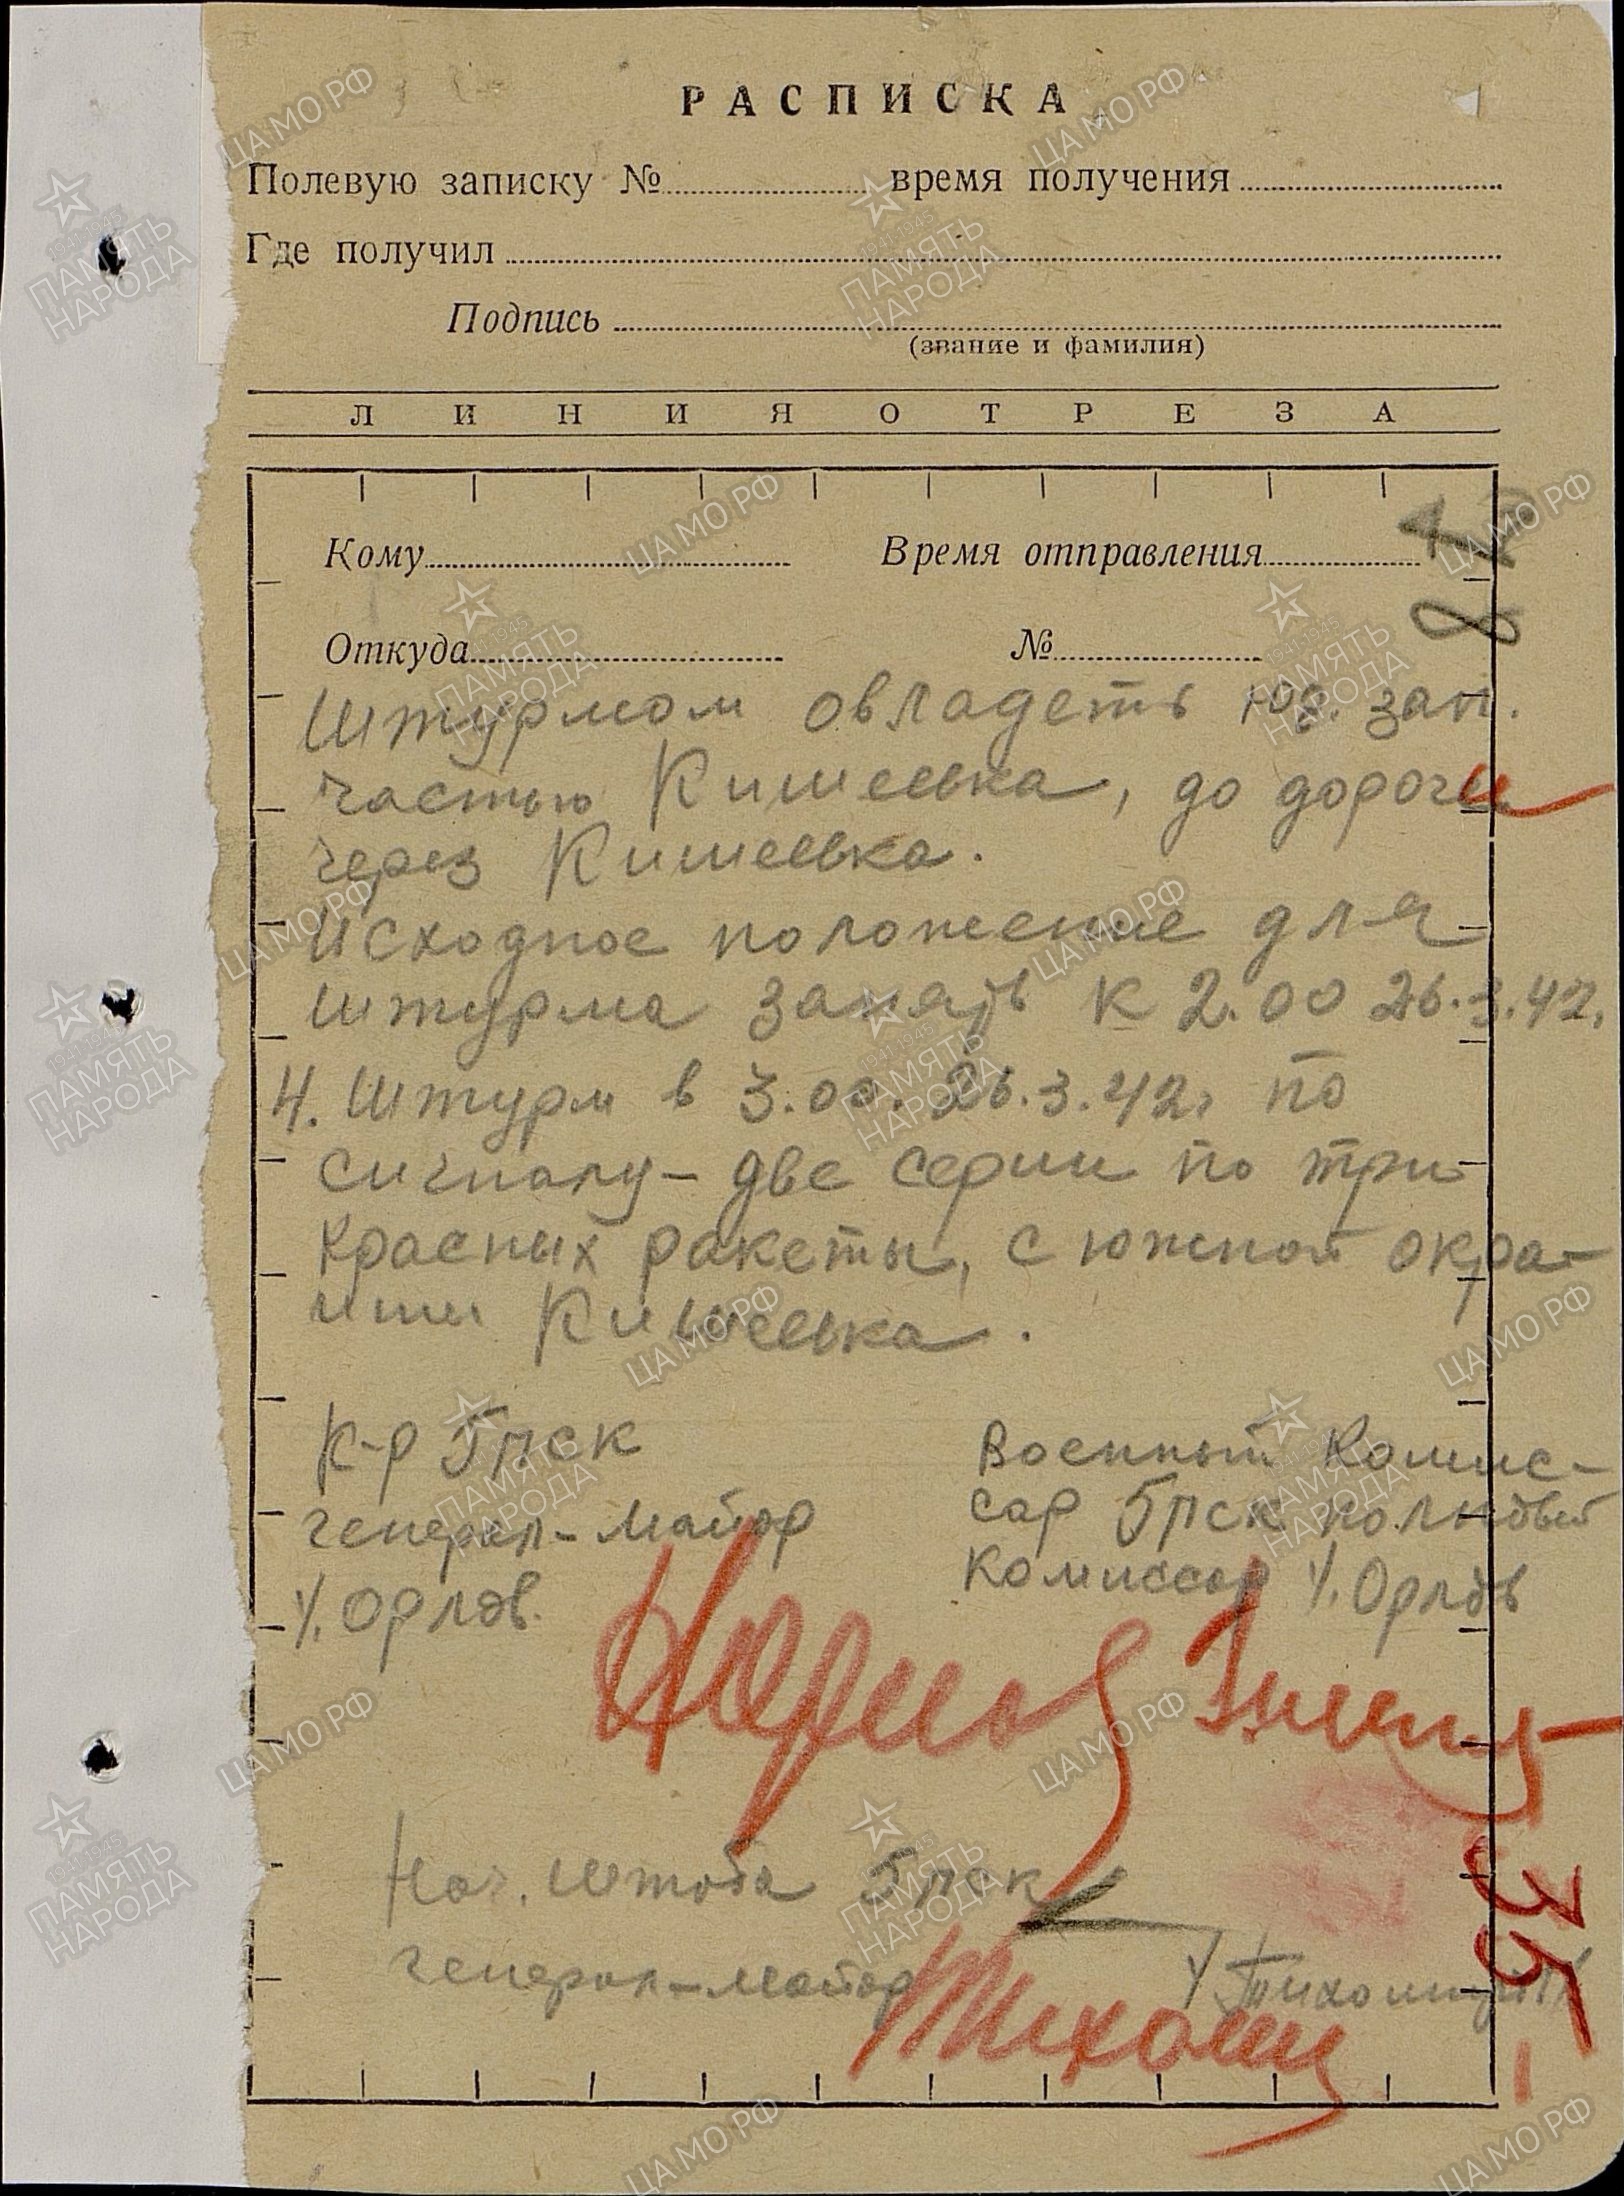 РАСПИСКА
Полевую записку № время получения
Где получил
Подпись
(звание и фамилия)
ЛИНИЯ ОТРЕЗА
Кому Время отправления
Откуда №
Штурмом овладеть юг. зап.
частью Кишеевка, до дороги
через Кишеевка.
Исходное положение для
штурма занять к 2.00 26.3.42.
4. Штурм в 3.00. 26.3.42г по
сигналу – две серии по три
красных ракеты, с южной окра-
ины Кишеевка.
К-р 5 гск Военный Комис-
генерал-майор сар 5 гск полковой
Орлов. Комиссар Орлов
Нач. штаба 5 гск
генерал-майор Тихомиров
Тихоми
35
ЦА МО РФ
1941-1945
ПАМЯТЬ
НАРОДА